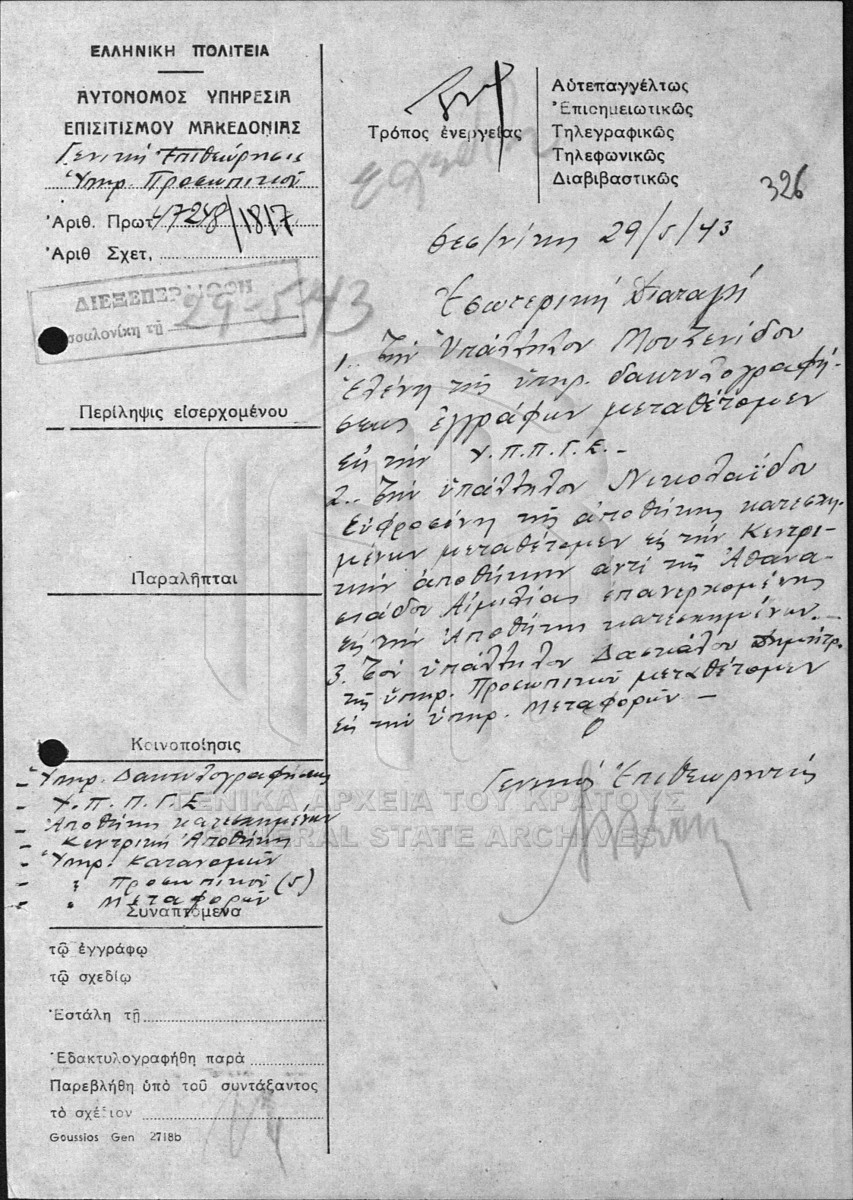 ΕΛΛΗΝΙΚΗ ΠΟΛΙΤΕΙΑ
ΑΥΤΟΝΟΜΟΣ ΥΠΗΡΕΣΙΑ
ΕΠΙΣΙΤΙΣΜΟΥ ΜΑΚΕΔΟΝΙΑΣ
Γενική Ἐπιθεώρησις
Ὑπηρ. Προσωπικοῦ
Ἀριθ. Πρωτ. 47248/1817
Ἀριθ Σχετ,
ΔΙΕΞΕΠΕΡΑΙΩΘΗ
σσαλονίκη τῇ 29-5-43
Περίληψις εἰσερχομένου
Παραλῆπται
Κοινοποίησις
- Ὑπηρ. Δακτυλογραφήσεως
- Υ.Π.Π.Γ.Ε.
- Ἀποθήκη κατεσχημένων
- Κεντρική Ἀποθήκη
- Ὑπηρ. Κατανομῶν
- " Προσωπικοῦ (5)
- " Μεταφορῶν
Συναπτόμενα
τῷ ἐγγράφῳ
τῷ σχεδίῳ
Ἐστάλη τῇ
Ἐδακτυλογραφήθη παρὰ
Παρεβλήθη ὑπὸ τοῦ συντάξαντος
τὸ σχέδιον
Goussios Gen 2718b
Τρόπος ἐνεργείας
Αὐτεπαγγέλτως
Ἐπισημειωτικῶς
Τηλεγραφικῶς
Τηλεφωνικῶς
Διαβιβαστικῶς
326
Θεσ/νίκη 29/5/43
Ἐσωτερική Διαταγή
1. Τὴν Ὑπάλληλον Μουζενίδου
Ἑλένη τῆς ὑπηρ. δακτυλογραφή-
σεως ἐγγράφων μεταθέτομεν
εἰς τὴν Υ.Π.Π.Γ.Ε. -
2. Τὴν ὑπάλληλον Νικολαΐδου
Εὐφροσύνη τῆς ἀποθήκης κατεσχη-
μένων μεταθέτομεν εἰς τὴν Κεντρι-
κὴν ἀποθήκην ἀντὶ τῆς Ἀθανα-
σιάδου Αἰμιλίας ἐπανερχομένης
εἰς τὴν Ἀποθήκης κατεσχημένων. -
3. Τὸν ὑπάλληλον Δασκάλου Δημήτρ.
τῆς ὑπηρ. Προσωπικοῦ μεταθέτομεν
εἰς τὴν ὑπηρ. Μεταφορῶν -
Ὁ
Γενικός Ἐπιθεωρητής
ΓΕΝΙΚΑ ΑΡΧΕΙΑ ΤΟΥ ΚΡΑΤΟΥΣ
GENERAL STATE ARCHIVES